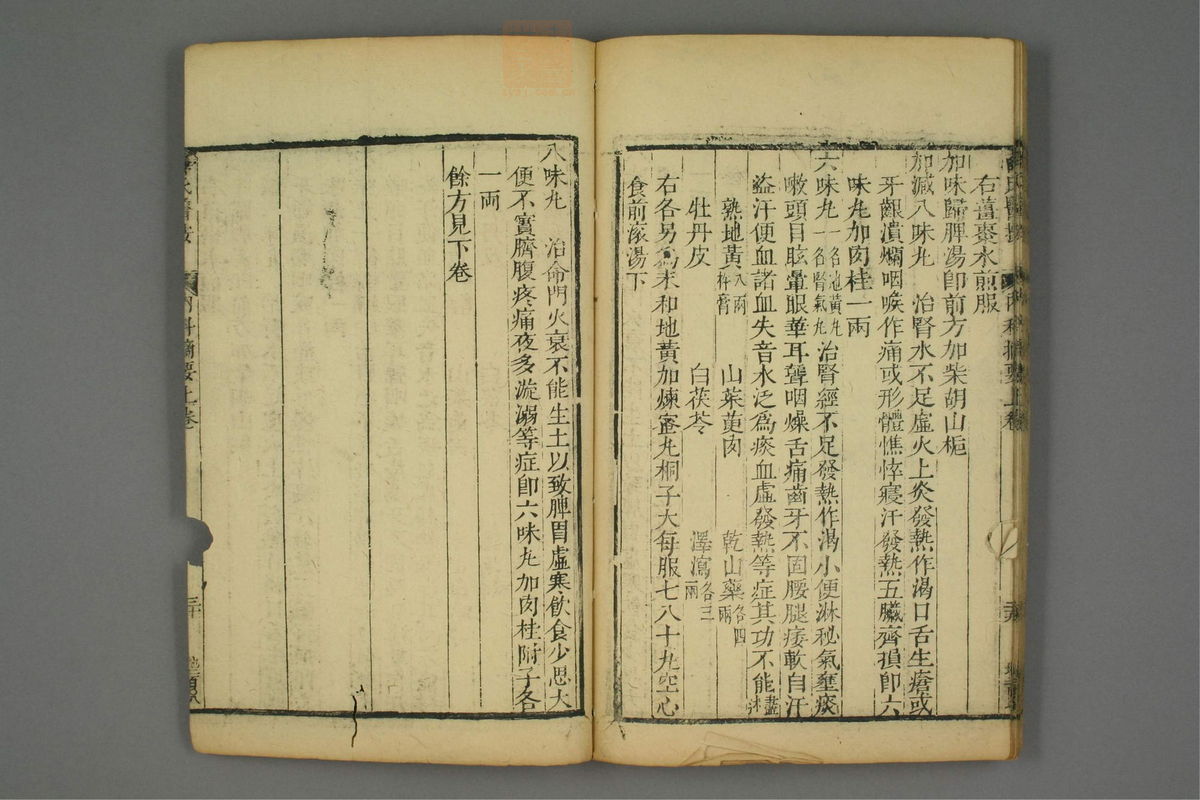 右薑棗水煎服
加味歸脾湯即前方加柴胡山梔
加減八味丸　治腎水不足虛火上炎發熱作渴口舌生瘡或
牙齦潰爛咽喉作痛或形體憔悴寢汗發熱五臟齊損即六
味丸加肉桂一兩
六味丸一名地黃丸一名腎氣丸治腎經不足發熱作渴小便淋秘氣壅痰
嗽頭目眩暈眼華耳聾咽燥舌痛齒牙不固腰腿痿軟自汗
盜汗便血諸血失音水泛爲痰血虛發熱等症其功不能盡述
熟地黃八兩杵膏　山茱萸肉　乾山藥各四兩
牡丹皮　白茯苓　澤瀉各三兩
右各另爲末和地黃加煉蜜丸桐子大每服七八十丸空心
食前滚湯下
八味丸　治命門火衰不能生土以致脾胃虛寒飲食少思大
便不實臍腹疼痛夜多漩溺等症即六味丸加肉桂附子各
一兩
餘方見下卷